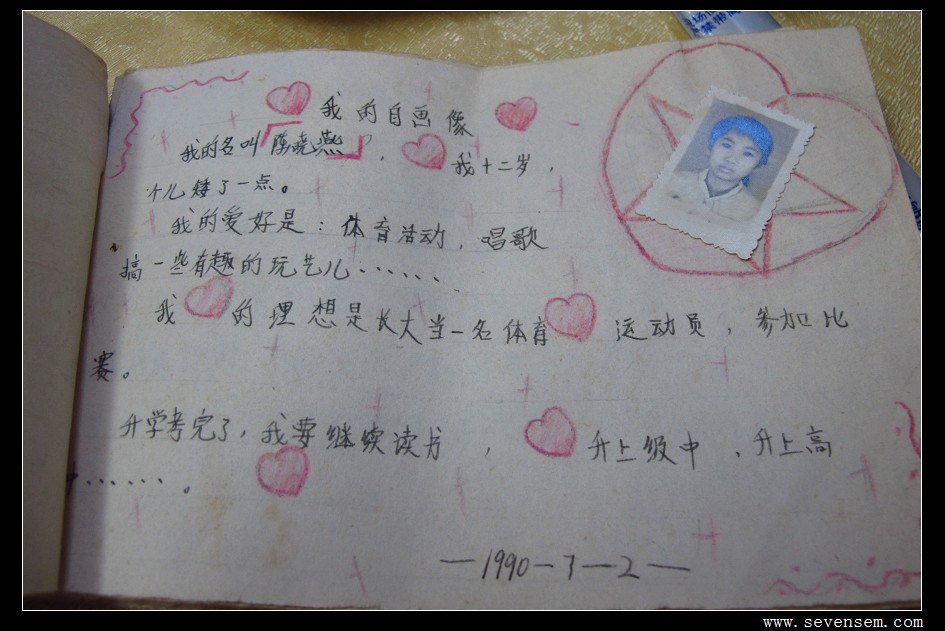 我的自画像
我的名叫『陈晓燕』，我十二岁，
个儿矮了一点。
我的爱好是：体育活动，唱歌
搞一些有趣的玩艺儿······
我的理想是长大当一名体育运动员，参加比
赛。
升学考完了，我要继续读书，升上级中、升上高
中······。
—1990—7—2—
www.sevensem.com